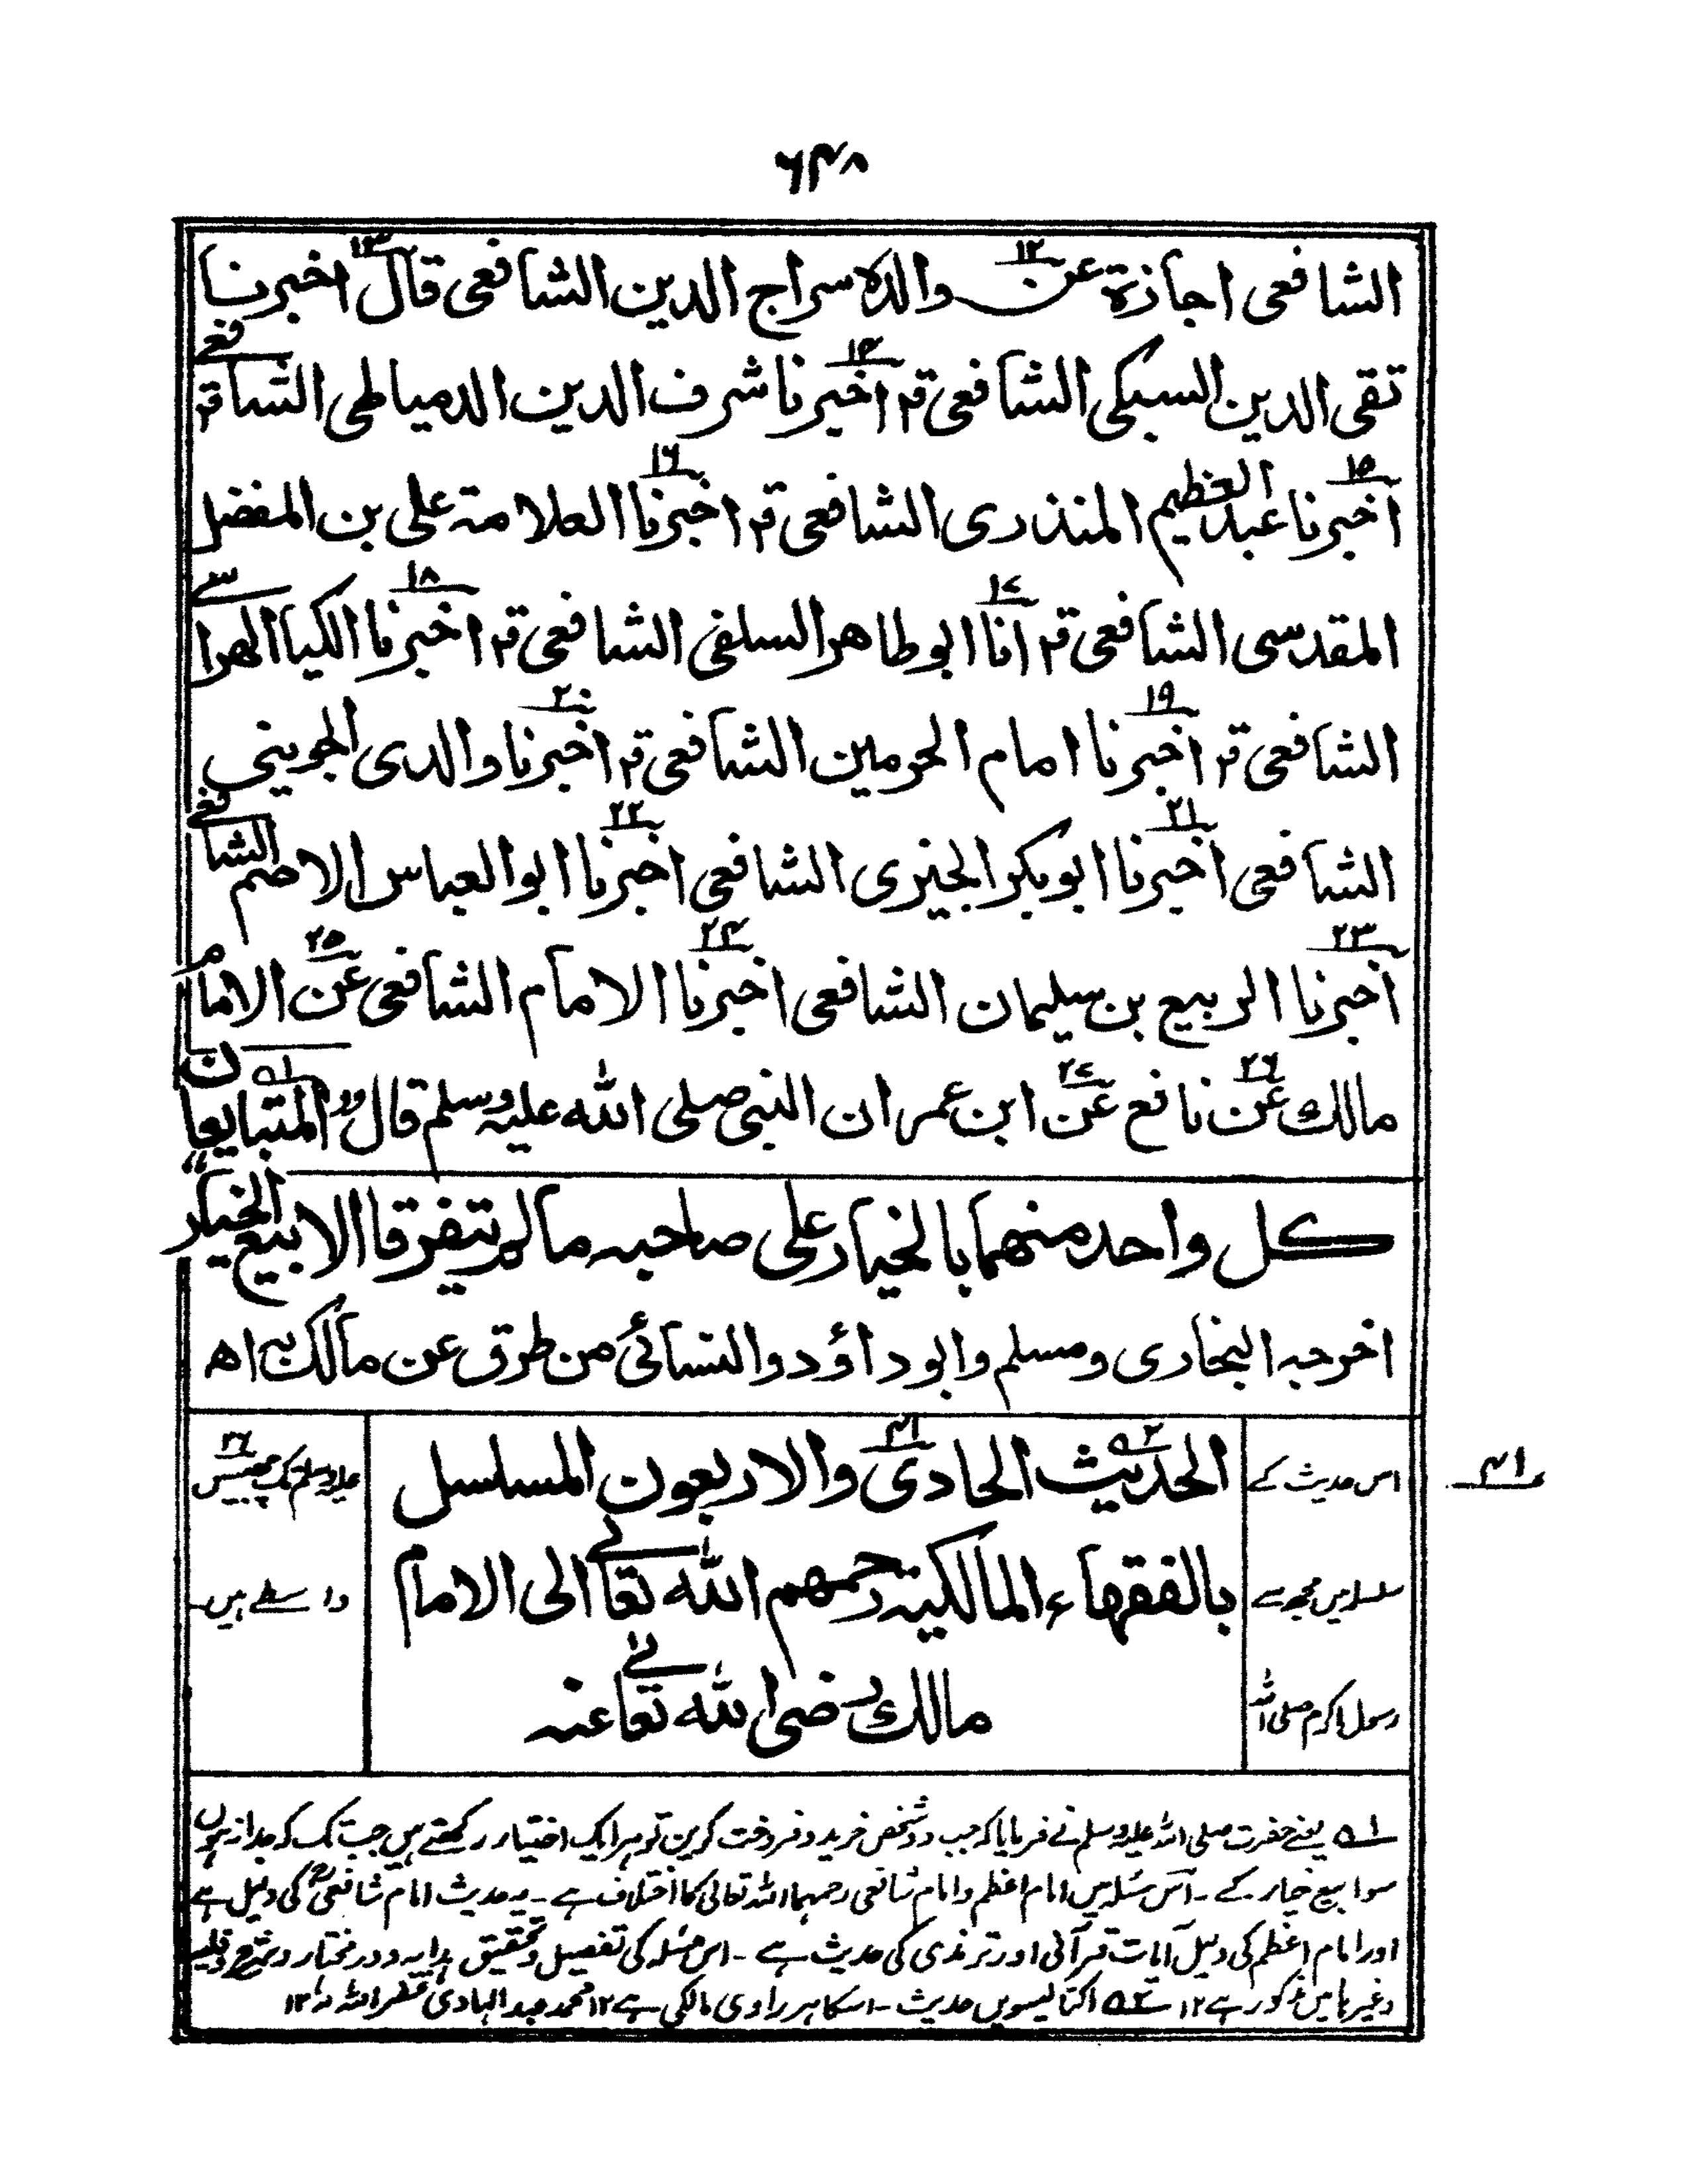 ۶۴۸
الشافعی اجازة عن۱۲ والده سراج الدین الشافعی قال۱۳ اخبرنا
تقی الدین السبکی الشافعی قر اخبرنا۱۴ شرف الدین الدمیاطی الشافعی قر
اخبرنا۱۵ عبد العظیم المنذری الشافعی قر اخبرنا۱۶ العلامة علی بن المفضل
المقدسی الشافعی قر انا۱۷ ابو طاهر السلفی الشافعی قر اخبرنا۱۸ الکیا الهراسے
الشافعی قر اخبرنا۱۹ امام الحرمین الشافعی قر اخبرنا۲۰ والدی الجوینی
الشافعی اخبرنا۲۱ ابوبکر الجیزی الشافعی اخبرنا۲۲ ابو العباس الاصم الشافعے
اخبرنا۲۳ الربیع بن سلیمان الشافعی اخبرنا۲۴ الامام الشافعی عن۲۵ الامام
مالك عن۲۶ نافع عن۲۷ ابن عمر ان النبی صلی الله علیه وسلم قال ”المتبایعان۱ه
کل واحد منهما بالخیار علی صاحبه مالم یتفرقا الا بیع الخیار“
اخرجه البخاری ومسلم وابو داؤد والنسائی من طرق عن مالك به اه
۴۱
الحدیث۲ه الحادی۴۱ والاربعون المسلسل
بالفقهاء المالکیة رحمهم الله تعالے الی الامام
مالك رضی الله تعالے عنه
اس حدیث کے
سلسلہ میں مجھ سے
رسول اکرم صلی اللہ
علیہ وسلم تک چھبیس۲۶
واسطے ہیں۔
۱ه یعنے حضرت صلی اللہ علیہ وسلم نے فرمایا کہ جب دو شخص خرید و فروخت کریں تو ہر ایک اختیار رکھتے ہیں جب تک کہ جدا نہ ہوں
سوا بیع خیار کے ۔ اس مسئلہ میں امام اعظم و امام شافعی رحمہما اللہ تعالی کا اختلاف ہے ۔ یہ حدیث امام شافعیؒ کی دلیل ہے
اور امام اعظم کی دلیل آیات قرآنی اور ترمذی کی حدیث ہے ۔ اس مسئلہ کی تفصیل و تحقیق ہدایہ و در مختار و شرح وقایہ
وغیرہا میں مذکور ہے ۱۲ ۲ه اکتالیسویں حدیث ۔ اسکا ہر راوی مالکی ہے ۱۲ محمد عبد الہادی غفر اللہ لہ ۱۲